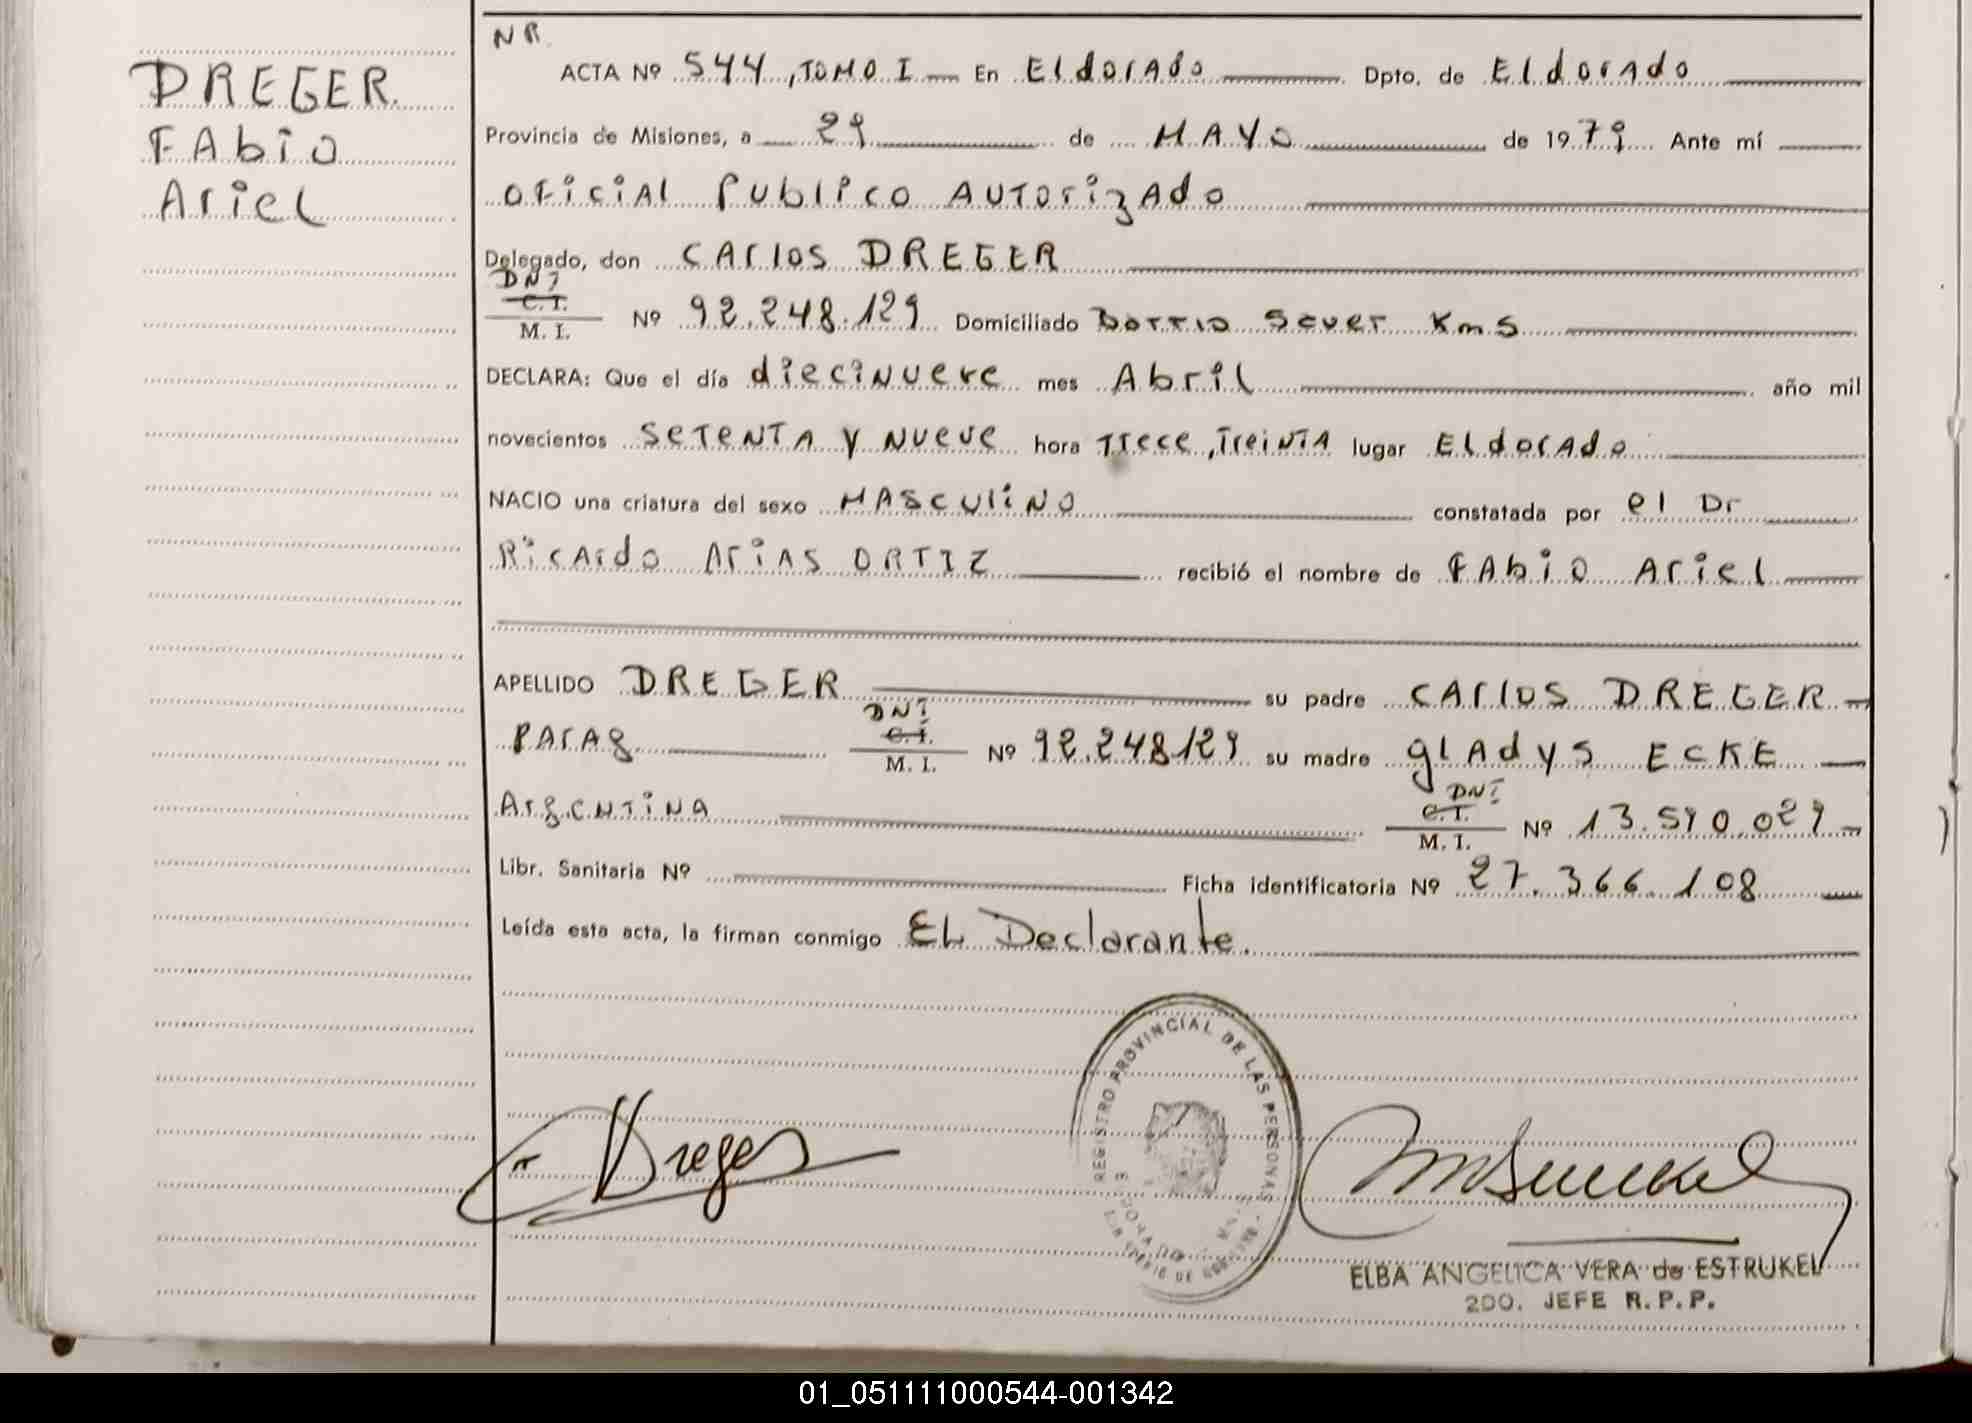 DREGER
FAbio
Ariel
NR.
ACTA Nº 544, TOMO I En Eldorado Dpto. de Eldorado
Provincia de Misiones, a 29 de MAYO de 1979 Ante mí
OFiciAl PUblico AUTorizAdo
Delegado, don CArlos DREGER
DNI
C. I.
M. I. Nº 92.248.129 Domiciliado Barrio Sever Km 5
DECLARA: Que el día diecinueve mes Abril año mil
novecientos SeTeNTA y Nueve hora Trece, TreiNTA lugar EldorAdo
NACIO una criatura del sexo MASCUliNO constatada por el Dr
RicArdo AriAs ORTIZ recibió el nombre de FAbio Ariel
APELLIDO DREGER su padre CArlos DREGER
PArAg DNI
C. I.
M. I. Nº 92.248129 su madre glAdys ECKE
ArgeNTiNA DNI
C. I.
M. I. Nº 13.590.029
Libr. Sanitaria Nº Ficha identificatoria Nº 27.366.108
Leída esta acta, la firman conmigo EL Declarante.
Dreger
REGISTRO PROVINCIAL DE LAS PERSONAS
ELBA ANGELICA VERA de ESTRUKEL
2DO. JEFE R.P.P.
01_051111000544-001342